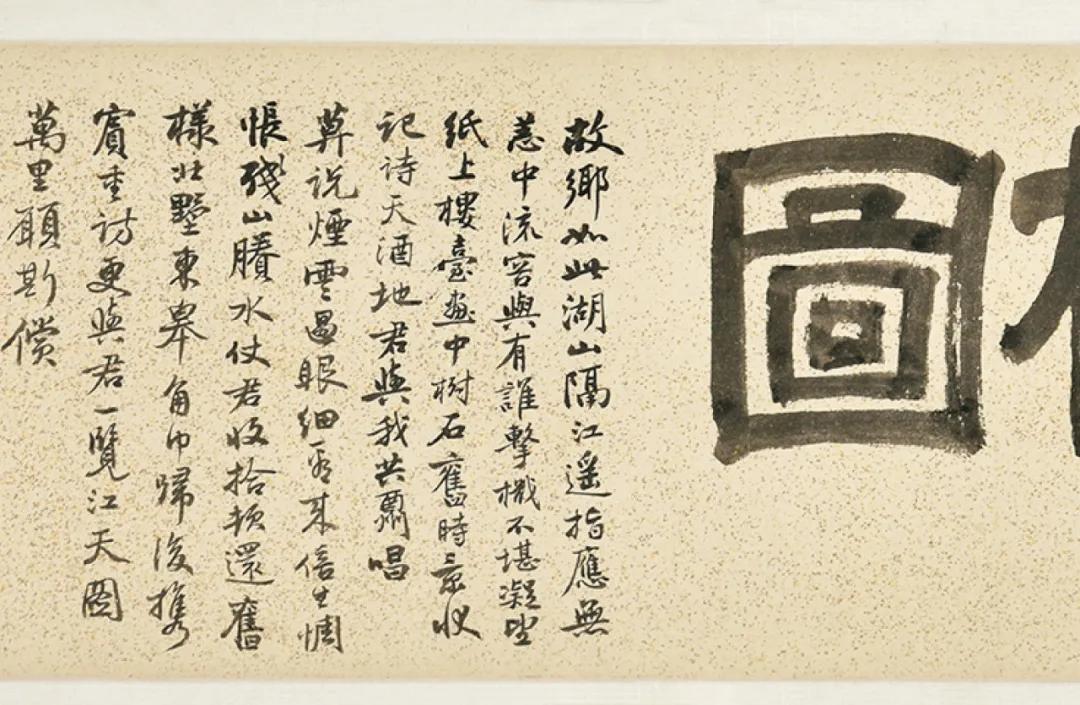 圖
故鄉如此湖山隔江遥指應無
恙中流容與有誰擊檝不堪凝望
紙上樓臺畫中樹石舊時景狀
記诗天酒地君與我共唱
算说煙雲過眼细看来倍生惆
悵殘山賸水仗君收拾頓還舊
樣北墅東皋角巾歸後携
賓重訪更與君一覽江天圖
萬里願斯償